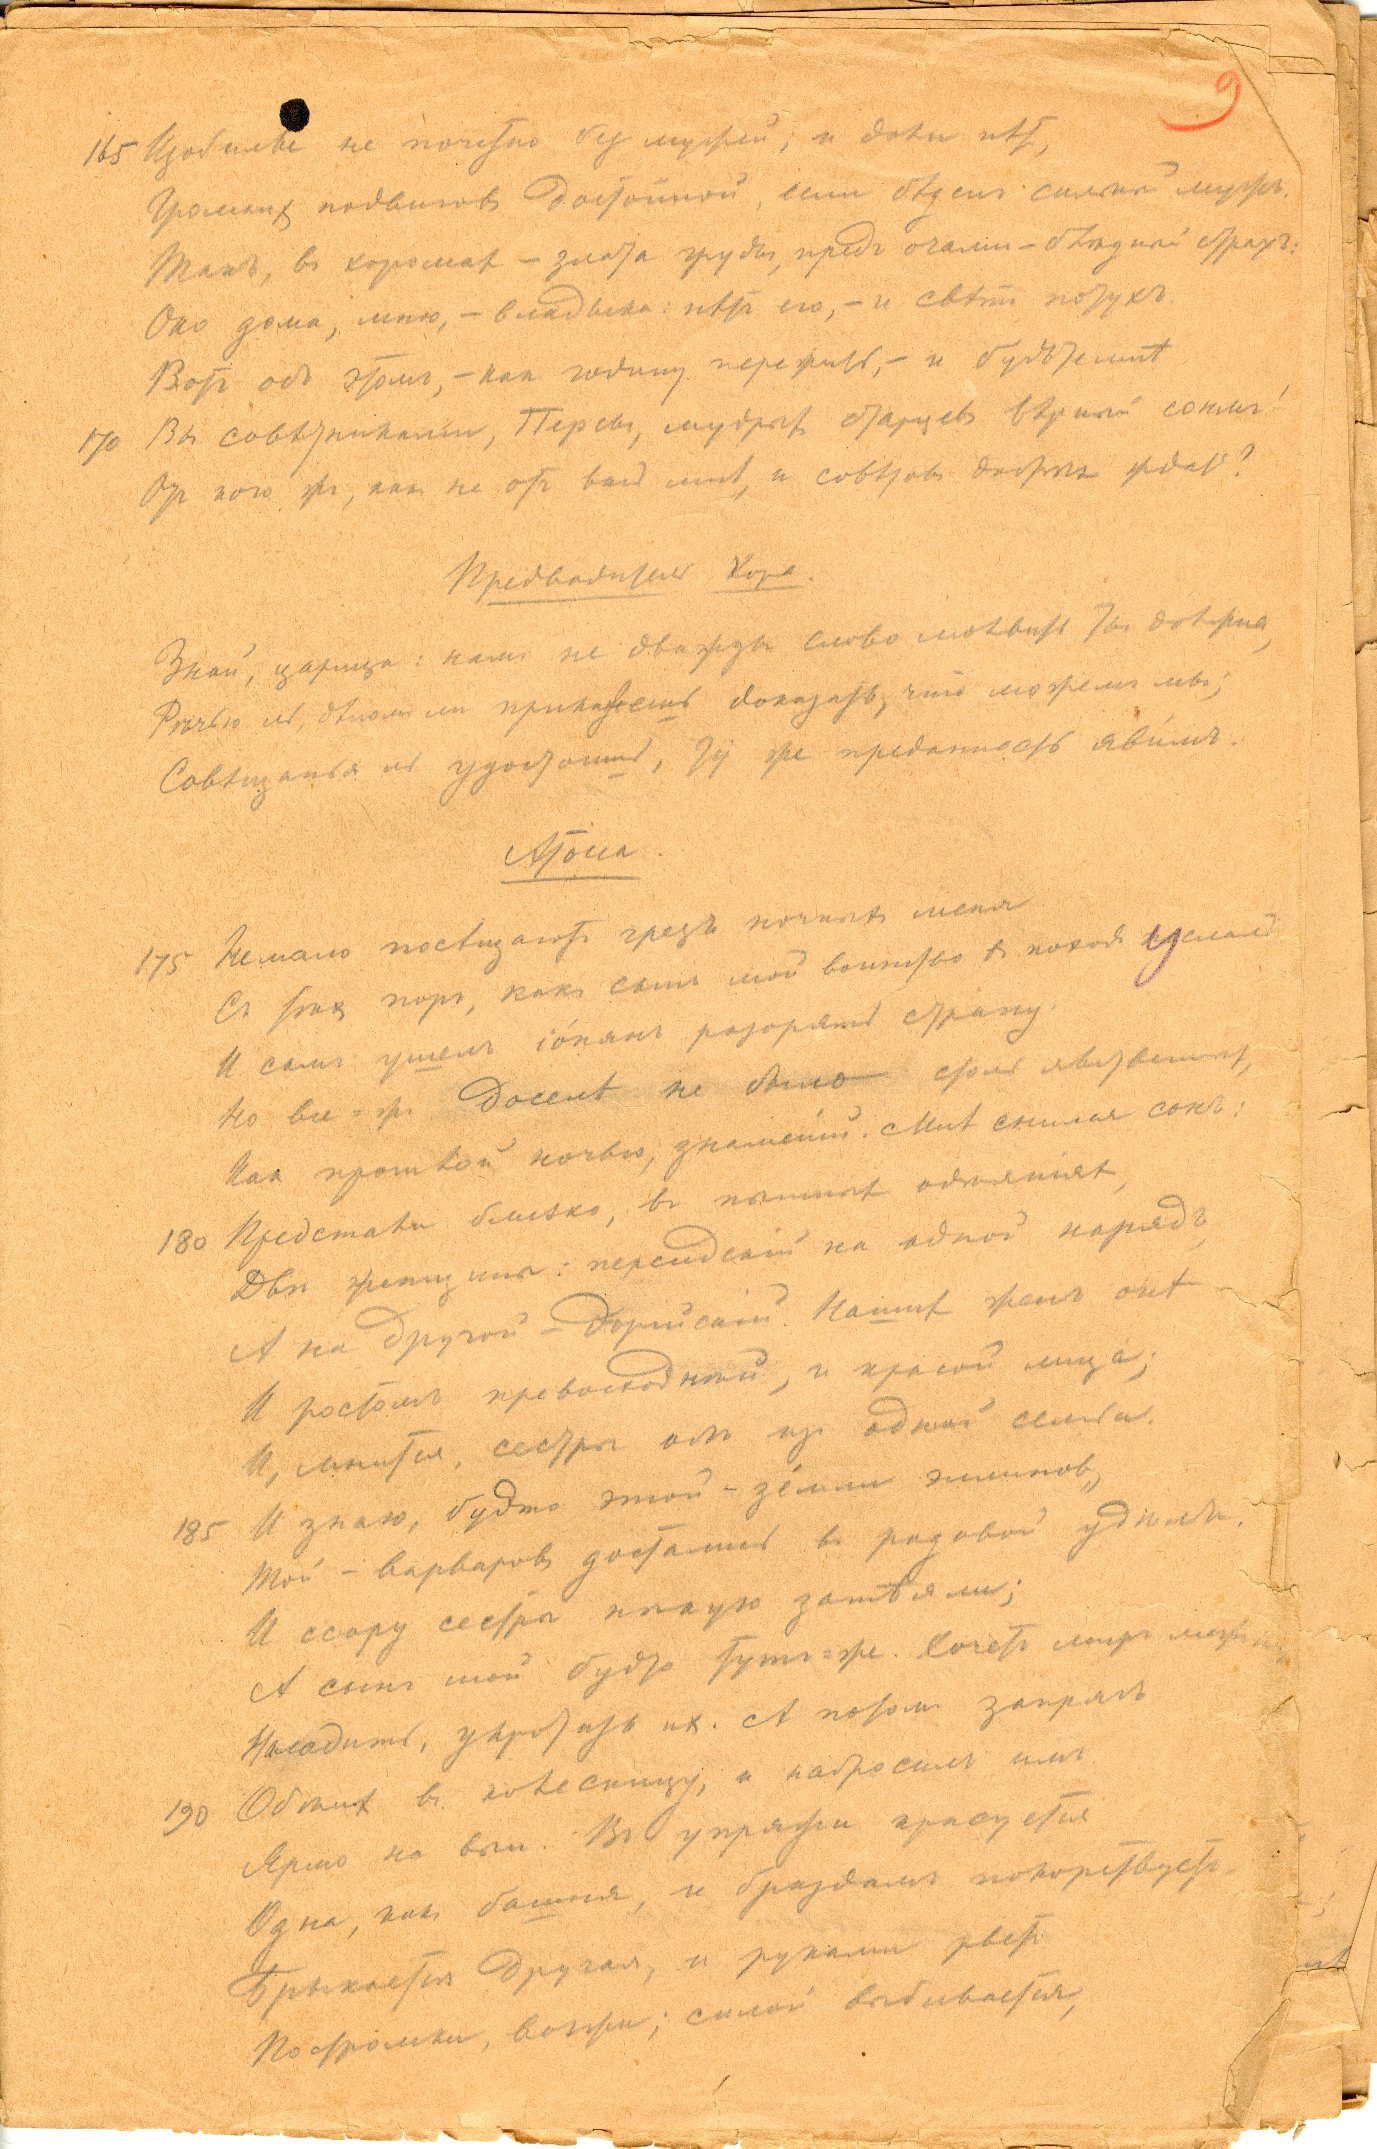 9
165 Изобилье не почетно без мужей; и доли нѣт,
Громких подвигов достойной, если бѣден сильный муж.
Такъ, в хоромах – злата груды, предъ очами – бѣдный страхъ:
Око дома, мню, – владыка: нѣт его, – и свѣт потухъ.
Вот об этом, – как годину пережить, – и будьте мнѣ
170 Вы совѣтниками, Персы, мудрых старцев вѣрный сонм!
От кого ж, как не от вас мнѣ, и совѣтов добрых ждать?
Предводитель Хора.
Знай, царица: нам не дважды слово молвить ты должна,
Рѣчью ль, дѣлом ли прикажешь доказать, что можем мы;
Совѣщанья ль удостоишь, ту же преданность явимъ.
Атосса.
175 Немало посѣщают грезы ночных меня
Съ тѣх поръ, как сынъ мой воинство в поход услал
И самъ ушелъ іонянъ разорять страну.
Но все-ж доселѣ не было столь явственных,
Как прошлой ночью, знаменій. Мнѣ снился сонъ:
180 Предстали близко, в пышных одѣяніях,
Двѣ женщины: персидскій на одной нарядъ,
А на другой – дорійскій. Наших женъ онѣ
И ростомъ превосходнѣй, и красой лица;
И, мнится, сестры обѣ из одной семьи.
185 И знаю, будто этой – земли эллинов,
Той – варваров достались в родовой удѣлъ.
И ссору сестры нѣкую затѣяли;
А сынъ мой будто тут-же. Хочет мир меж
Наладить, укротить их. А потом запрягъ
190 Обѣих в колесницу, и набросилъ имъ
Ярмо на выи. В упряжи красуется
Одна, как башня, и браздамъ покорствует.
Брыкается другая, и руками рвет
Постромки, вожжи; силой выбивается,